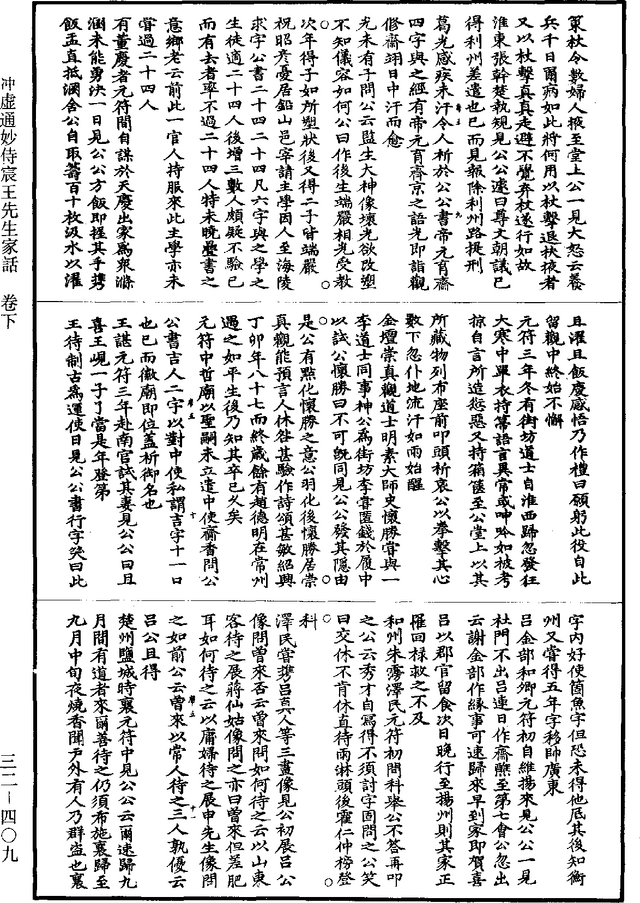 策杖令數婦人掖至堂上公一見大怒云養
兵千日爾病如此將何用以杖擊退扶掖者
又以杖擊真真走避不覺弃杖遂行如故
淮東張幹楚執規見公公遽曰尊丈朝議已
得利州差遣也已而見報除利州路提刑
葛光感疾未汗令人祈於公公書帝元育齋
四字與之經有帝元育齋京之語光即詣觀
修齋翊日中汗而愈
光未有子問公云監生大神像壞光欲改塑
不知儀容如何公曰作後生端嚴相光受教
次年得子如所塑狀後又得二子皆端嚴
祝昭彥憂居鉛山邑宰請主學因人至海陵
求字公書二十四二十四凡六字與之學之
生徒適二十四人後增三數人頗疑不驗已
而有去者率不過二十四人特未曉疊書之
意鄉老云前此一官人持服來此主學亦未
嘗過二十四人
有董慶者元符間自謀於天慶出家為眾滌
溷未能勇决一日見公公方飯即捏其手携
飯盂直抵溷舍公自取籌百十枚汲水以濯
且濯且飯慶感悟乃作禮曰願躬此役自此
留觀中終始不懈
元符三年冬有街坊道士自淮西歸忽發狂
大寒中單衣持箒語言異常或呻吟如被考
掠自言所造愆惡又持箱篋至公堂上以其
所藏物列布座前叩頭祈哀公以拳擊其心
數下忽仆地流汗如雨始醒
金壇崇真觀道士明素大師史懷勝嘗與一
李道士同事神公為街坊李嘗匿錢於履中
以試公懷勝曰不可旣同見公公發其隱由
是公有點化懷勝之意公羽化後懷勝居崇
真觀能預言人休咎甚驗作詩頌甚敏紹興
丁卯年八十七而終歲餘有趙德明在常州
遇之如平生後乃知其卒已久矣
元符中哲廟以聖嗣未立遣中使齋香問公
公書吉人二字以對中使私謂吉字十一口
也已而徽廟即位蓋祈御名也
王諶元符三年赴南宮試其妻見公公曰且
喜王峴一子了當是年登第
王待制古為運使日見公公書行字笑曰此
字内好使箇魚字但恐未得他厎其後知衡
州又嘗得五年字移帥廣東
呂金部和卿元符初自維揚來見公公一見
杜門不出呂連日作齋醮至第七會公忽出
云謝金部作緣事可速歸來早到家即賀喜
呂以郡官留食次日晚行至揚州則其家正
罹回祿救之不及
和州朱霧澤民元符初問科舉公不答再叩
之公云秀才自寫得不須討字固問之公笑
曰交休不肯休直待兩淋頭後霍仁仲榜登
科
澤民嘗携呂真人等三畫像見公初展呂公
像問曾來否云曾來問如何待之云以山東
客待之展蔣仙姑像問之亦曰曾來但差肥
耳如何待之云以庸婦待之展申先生像問
之如前公云曾來以常人待之三人孰優云
呂公且得
楚州鹽城時襄元符中見公公云爾速歸九
月間有道者來爾善待之仍須布施襄歸至
九月中旬夜燒香聞戶外有人乃群盜也襄
冲虛通妙侍宸王先生家話 卷下
三二—四〇九